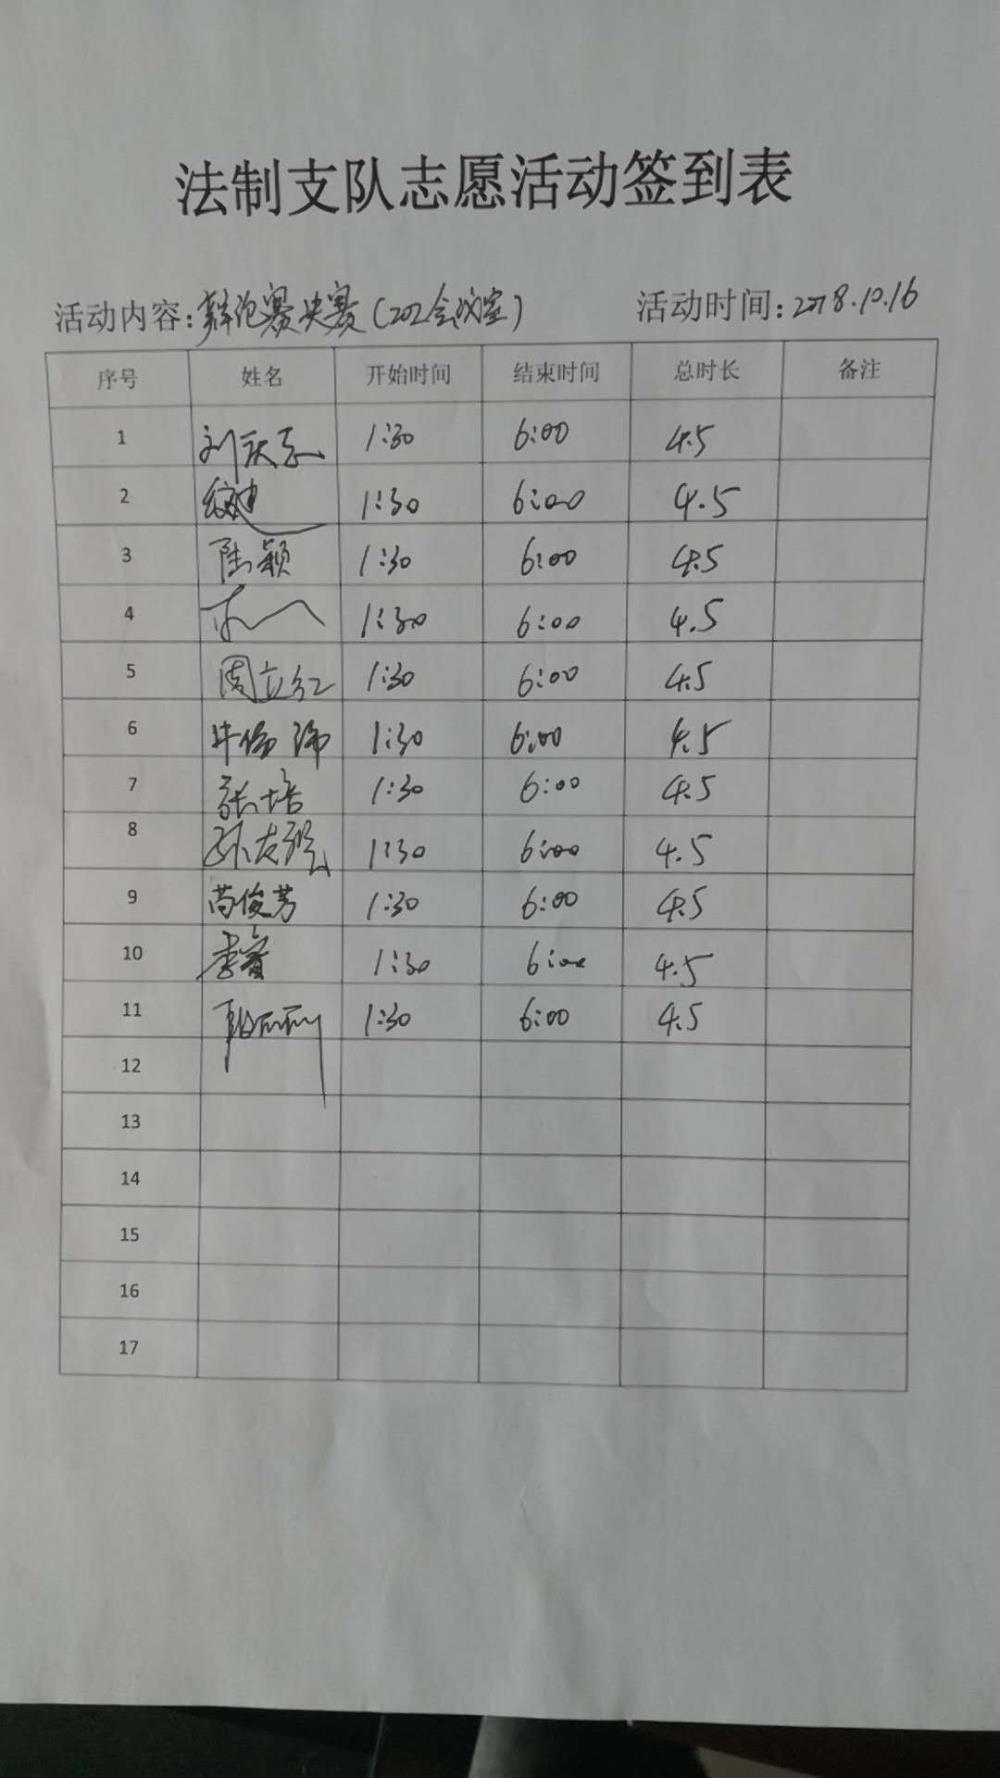 法制支队志愿活动签到表
活动内容:辩论赛决赛(202会议室) 活动时间:2018.10.16
序号 姓名 开始时间 结束时间 总时长 备注
1 1:30 6:00 4.5
2 1:30 6:00 4.5
3 陆颖 1:30 6:00 4.5
4 1:30 6:00 4.5
5 周立红 1:30 6:00 4.5
6 1:30 6:00 4.5
7 张培 1:30 6:00 4.5
8 1:30 6:00 4.5
9 苗俊芳 1:30 6:00 4.5
10 1:30 6:00 4.5
11 1:30 6:00 4.5
12
13
14
15
16
17